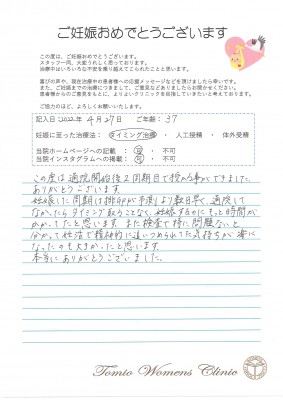 ご妊娠おめでとうございます
この度は、ご妊娠おめでとうございます。
スタッフ一同、大変うれしく思っております。
治療中はいろいろな不安を乗り越えてこられたことと思います。
喜びの声や、現在治療中の患者様への応援メッセージなどを頂けましたら幸いです。
また、ご妊娠までの治療につきまして、ご意見などお気づきの点などございましたら、
患者様からのご意見をもとに、よりよいクリニックを目指していきたいと考えております。
ご協力のほど、よろしくお願いいたします。
記入日 2022年 4月27日 ご年齢: 37
妊娠に至った治療法: タイミング治療 ・ 人工授精 ・ 体外受精
当院ホームページへの記載 : 可 ・ 不可
当院インスタグラムへの掲載 : 可 ・ 不可
この度は通院開始後2周期目で授かる事ができました。
ありがとうございます。
妊娠した周期は排卵が予測より数日早く、通院して
なかったらタイミング取ることなく、妊娠するのにもっと時間が
かかってたと思います。また検査で特に問題ないと
分かって妊活で精神的に追いつめられてた気持ちが楽に
なったのも大きかったと思います。
本当にありがとうございました。
Tomio Womens Clinic